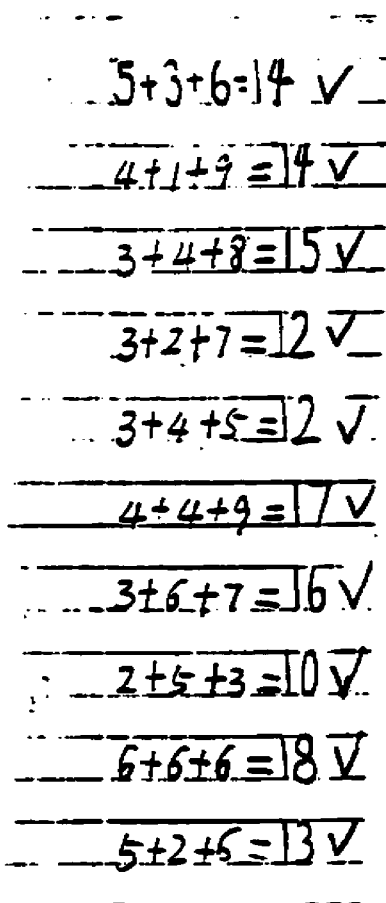 5+3+6=14 ✓
4+1+9=14 ✓
3+4+8=15 ✓
3+2+7=12 ✓
3+4+5=12 ✓
4+4+9=17 ✓
3+6+7=16 ✓
2+5+3=10 ✓
6+6+6=18 ✓
5+2+6=13 ✓